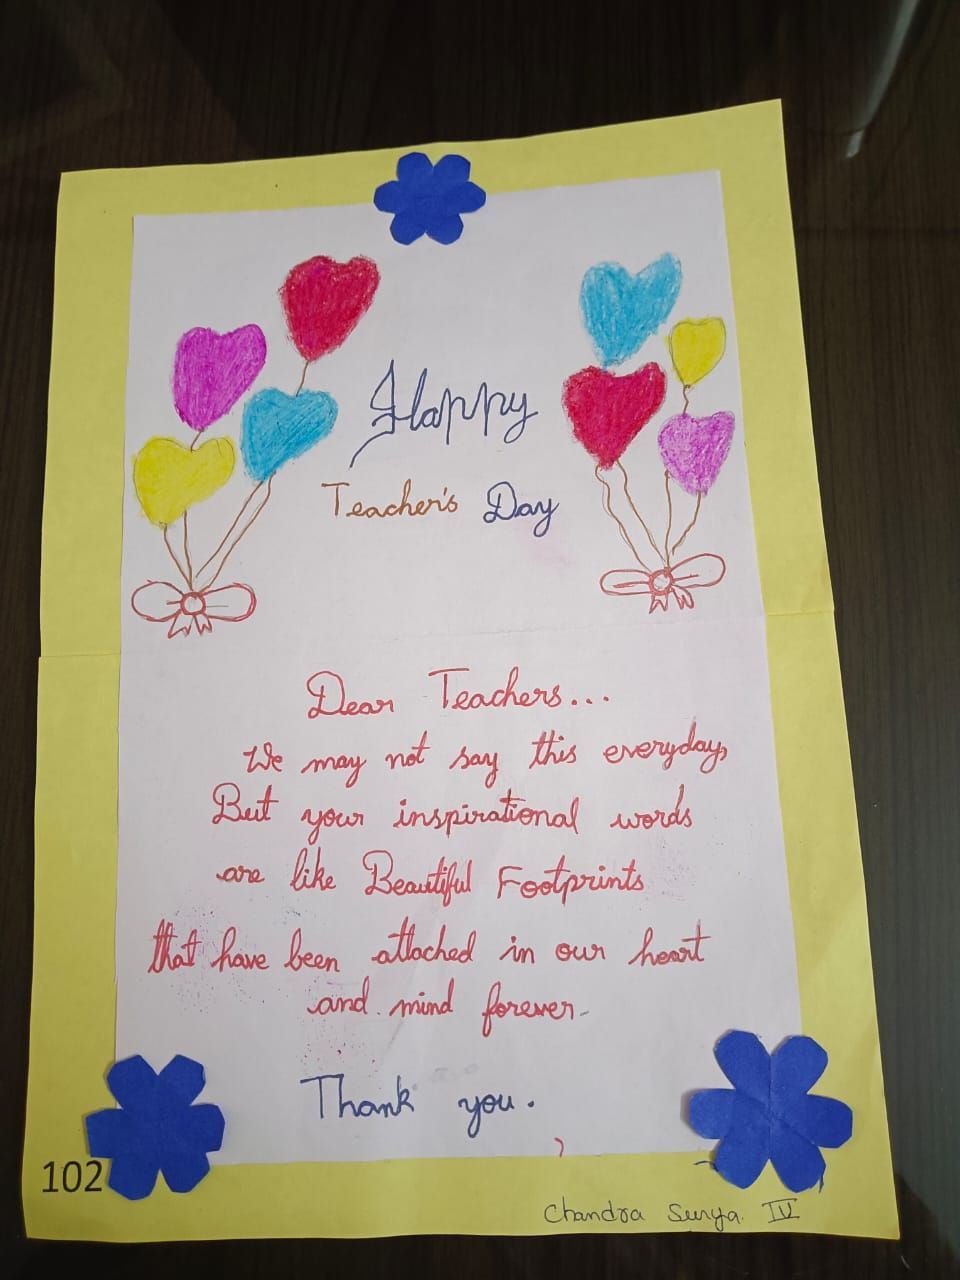 Happy
Teacher's Day
Dear Teachers...
We may not say this everyday,
But your inspirational words
are like Beautiful Footprints
that have been attached in our heart
and mind forever.
Thank you.
102
Chandra Surya. IV